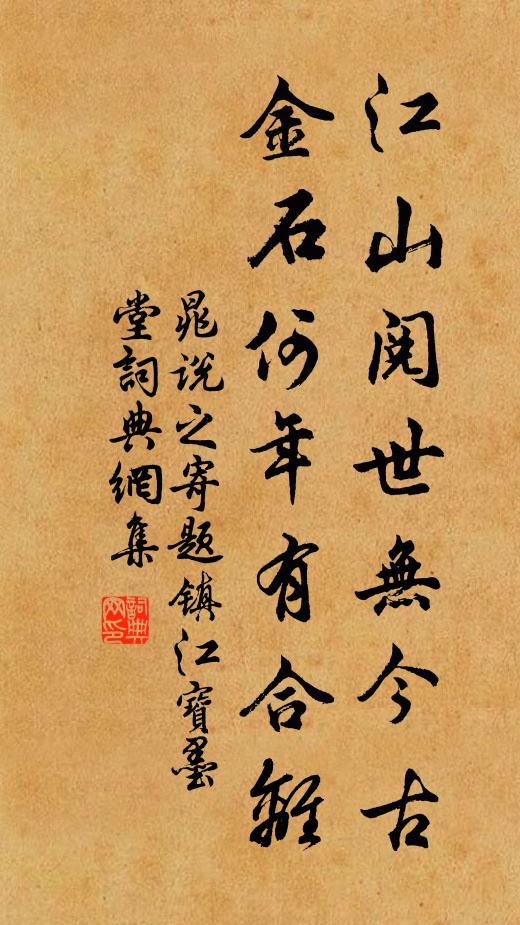 江山閱世無今古
金石何年有合離
晁說之寄题镇江寶墨
堂詞典網集
詞典網印